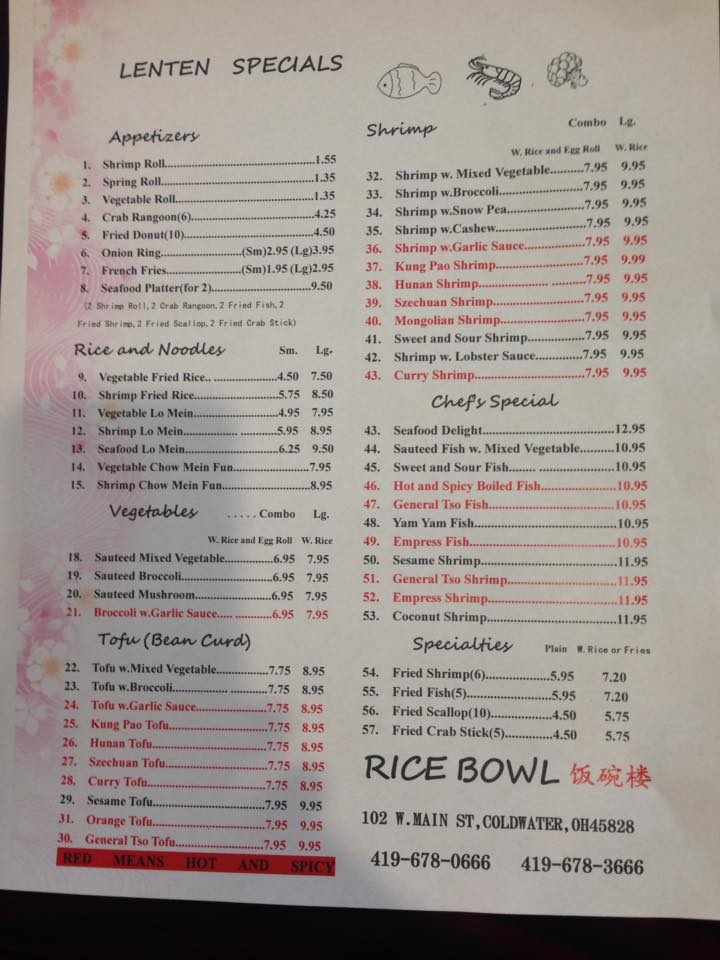 LENTEN SPECIALS
Appetizers
1. Shrimp Roll..............................................1.55
2. Spring Roll..............................................1.35
3. Vegetable Roll..........................................1.35
4. Crab Rangoon(6)......................................4.25
5. Fried Donut(10).......................................4.50
6. Onion Ring........................(Sm)2.95 (Lg)3.95
7. French Fries.......................(Sm)1.95 (Lg)2.95
8. Seafood Platter(for 2)..............................9.50
(2 Shrimp Roll,2 Crab Rangoon,2 Fried Fish,2
Fried Shrimp,2 Fried Scallop,2 Fried Crab Stick)
Rice and Noodles Sm. Lg.
9. Vegetable Fried Rice.. ...................4.50 7.50
10. Shrimp Fried Rice.........................5.75 8.50
11. Vegetable Lo Mein........................4.95 7.95
12. Shrimp Lo Mein................... ..........5.95 8.95
13. Seafood Lo Mein...........................6.25 9.50
14. Vegetable Chow Mein Fun.......................7.95
15. Shrimp Chow Mein Fun..........................8.95
Vegetables .....Combo Lg.
W. Rice and Egg Roll W. Rice
18. Sauteed Mixed Vegetable...............6.95 7.95
19. Sauteed Broccoli...........................6.95 7.95
20. Sauteed Mushroom.......................6.95 7.95
21. Broccoli w.Garlic Sauce..... ...........6.95 7.95
Tofu (Bean Curd)
22. Tofu w.Mixed Vegetable................7.75 8.95
23. Tofu w.Broccoli.................. ...........7.75 8.95
24. Tofu w.Garlic Sauce......................7.75 8.95
25. Kung Pao Tofu.............................7.75 8.95
26. Hunan Tofu.................................7.75 8.95
27. Szechuan Tofu..............................7.75 8.95
28. Curry Tofu..................................7.75 8.95
29. Sesame Tofu.................................7.95 9.95
31. Orange Tofu................................7.95 9.95
30. General Tso Tofu..........................7.95 9.95
RED MEANS HOT AND SPICY
Shrimp Combo Lg.
W. Rice and Egg Roll W. Rice
32. Shrimp w. Mixed Vegetable..........7.95 9.95
33. Shrimp w.Broccoli.......................7.95 9.95
34. Shrimp w.Snow Pea.....................7.95 9.95
35. Shrimp w.Cashew........................7.95 9.95
36. Shrimp w.Garlic Sauce.................7.95 9.95
37. Kung Pao Shrimp........................7.95 9.99
38. Hunan Shrimp.................. .........7.95 9.95
39. Szechuan Shrimp........................7.95 9.95
40. Mongolian Shrimp......................7.95 9.95
41. Sweet and Sour Shrimp...............7.95 9.95
42. Shrimp w. Lobster Sauce.............7.95 9.95
43. Curry Shrimp.............................7.95 9.95
Chef's Special
43. Seafood Delight....................................12.95
44. Sauteed Fish w. Mixed Vegetable..........10.95
45. Sweet and Sour Fish....... ....................10.95
46. Hot and Spicy Boiled Fish....................10.95
47. General Tso Fish..................................10.95
48. Yam Yam Fish.....................................10.95
49. Empress Fish.......................................10.95
50. Sesame Shrimp.....................................11.95
51. General Tso Shrimp..............................11.95
52. Empress Shrimp...................................11.95
53. Coconut Shrimp...................................11.95
Specialties Plain W. Rice or Fries
54. Fried Shrimp(6)................5.95 7.20
55. Fried Fish(5).....................5.95 7.20
56. Fried Scallop(10)................4.50 5.75
57. Fried Crab Stick(5).............4.50 5.75
RICE BOWL 饭碗楼
102 W.MAIN ST,COLDWATER,OH45828
419-678-0666 419-678-3666